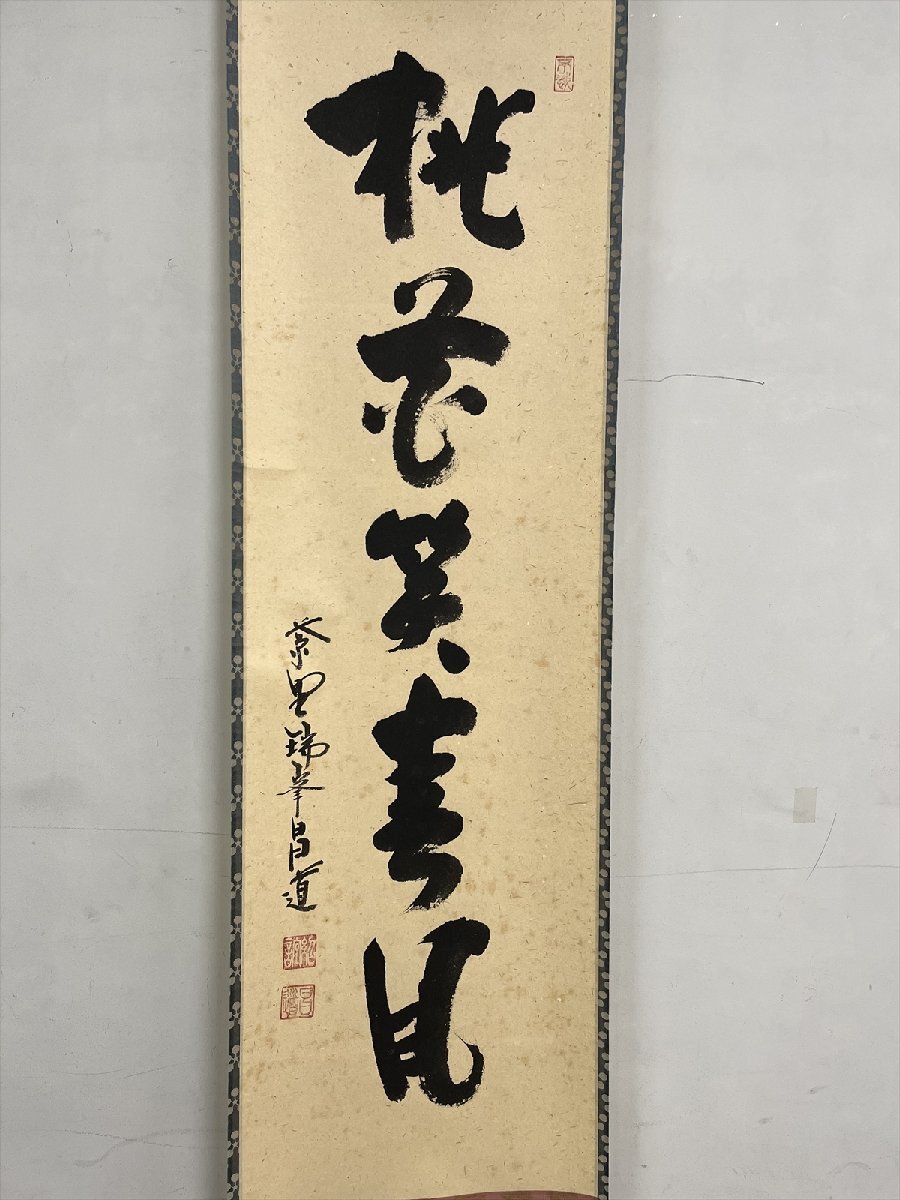 桃花笑春風
紫野瑞峯昌道